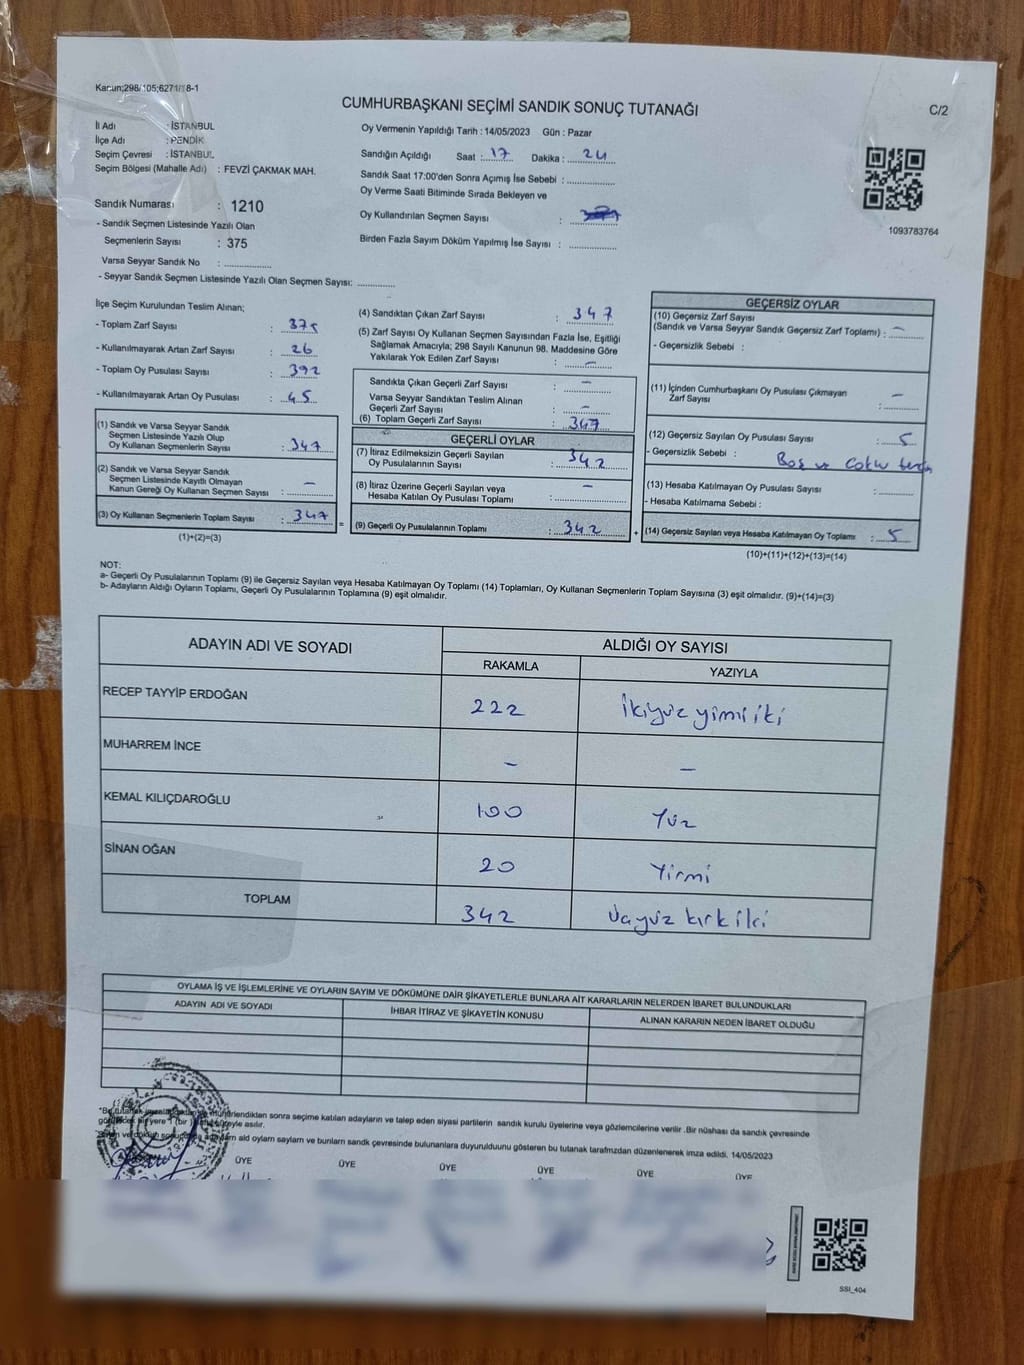 Kanun;298/105;6271/18-1
CUMHURBAŞKANI SEÇİMİ SANDIK SONUÇ TUTANAĞI
C/2
İl Adı : İSTANBUL
İlçe Adı : PENDİK
Seçim Çevresi : İSTANBUL
Seçim Bölgesi (Mahalle Adı) : FEVZİ ÇAKMAK MAH.
Sandık Numarası : 1210
- Sandık Seçmen Listesinde Yazılı Olan
Seçmenlerin Sayısı : 375
Varsa Seyyar Sandık No : ..............
- Seyyar Sandık Seçmen Listesinde Yazılı Olan Seçmen Sayısı: ............
Oy Vermenin Yapıldığı Tarih : 14/05/2023 Gün : Pazar
Sandığın Açıldığı Saat : 17 Dakika : 24
Sandık Saat 17:00'den Sonra Açımış İse Sebebi : ..............
Oy Verme Saati Bitiminde Sırada Bekleyen ve
Oy Kullandırılan Seçmen Sayısı :
Birden Fazla Sayım Döküm Yapılmış İse Sayısı : ..............
1093783764
İlçe Seçim Kurulundan Teslim Alınan;
- Toplam Zarf Sayısı : 375
- Kullanılmayarak Artan Zarf Sayısı : 26
- Toplam Oy Pusulası Sayısı : 392
- Kullanılmayarak Artan Oy Pusulası : 45
(1) Sandık ve Varsa Seyyar Sandık
Seçmen Listesinde Yazılı Olup
Oy Kullanan Seçmenlerin Sayısı : 347
(2) Sandık ve Varsa Seyyar Sandık
Seçmen Listesinde Kayıtlı Olmayan
Kanun Gereği Oy Kullanan Seçmen Sayısı : –
(3) Oy Kullanan Seçmenlerin Toplam Sayısı : 347
=
(1)+(2)=(3)
(4) Sandıktan Çıkan Zarf Sayısı : 347
(5) Zarf Sayısı Oy Kullanan Seçmen Sayısından Fazla İse, Eşitliği
Sağlamak Amacıyla; 298 Sayılı Kanunun 98. Maddesine Göre
Yakılarak Yok Edilen Zarf Sayısı : –
Sandıkta Çıkan Geçerli Zarf Sayısı : –
Varsa Seyyar Sandıktan Teslim Alınan
Geçerli Zarf Sayısı : –
(6) Toplam Geçerli Zarf Sayısı : 347
GEÇERLİ OYLAR
(7) İtiraz Edilmeksizin Geçerli Sayılan
Oy Pusulalarının Sayısı : 342
(8) İtiraz Üzerine Geçerli Sayılan veya
Hesaba Katılan Oy Pusulası Toplamı : –
(9) Geçerli Oy Pusulalarının Toplamı : 342
+
GEÇERSİZ OYLAR
(10) Geçersiz Zarf Sayısı
(Sandık ve Varsa Seyyar Sandık Geçersiz Zarf Toplamı) : –
- Geçersizlik Sebebi :
(11) İçinden Cumhurbaşkanı Oy Pusulası Çıkmayan
Zarf Sayısı : –
(12) Geçersiz Sayılan Oy Pusulası Sayısı : 5
- Geçersizlik Sebebi : Boş ve
(13) Hesaba Katılmayan Oy Pusulası Sayısı : ............
- Hesaba Katılmama Sebebi :
(14) Geçersiz Sayılan veya Hesaba Katılmayan Oy Toplamı : 5
(10)+(11)+(12)+(13)=(14)
NOT:
a- Geçerli Oy Pusulalarının Toplamı (9) ile Geçersiz Sayılan veya Hesaba Katılmayan Oy Toplamı (14) Toplamları, Oy Kullanan Seçmenlerin Toplam Sayısına (3) eşit olmalıdır. (9)+(14)=(3)
b- Adayların Aldığı Oyların Toplamı, Geçerli Oy Pusulalarının Toplamına (9) eşit olmalıdır.
ADAYIN ADI VE SOYADI ALDIĞI OY SAYISI
RAKAMLA YAZIYLA
RECEP TAYYİP ERDOĞAN 222 İkiyüz yimi iki
MUHARREM İNCE – –
KEMAL KILIÇDAROĞLU 100 Yüz
SİNAN OĞAN 20 Yirmi
TOPLAM 342 Üçyüz kırk iki
OYLAMA İŞ VE İŞLEMLERİNE VE OYLARIN SAYIM VE DÖKÜMÜNE DAİR ŞİKAYETLERLE BUNLARA AİT KARARLARIN NELERDEN İBARET BULUNDUKLARI
ADAYIN ADI VE SOYADI İHBAR İTİRAZ VE ŞİKAYETİN KONUSU ALINAN KARARIN NEDEN İBARET OLDUĞU
sonra seçime katılan adayların ve talep eden siyasi partilerin sandık kurulu üyelerine veya gözlemcilerine verilir .Bir nüshası da sandık çevresinde
bir yere 1 (bir) asılır.
ald oyların sayların ve bunların sandık çevresinde bulunanlara duyurulduunu gösteren bu tutanak tarafmzdan düzenlenerek imza edildi. 14/05/2023
ÜYE ÜYE ÜYE ÜYE ÜYE ÜYE
SSI_404